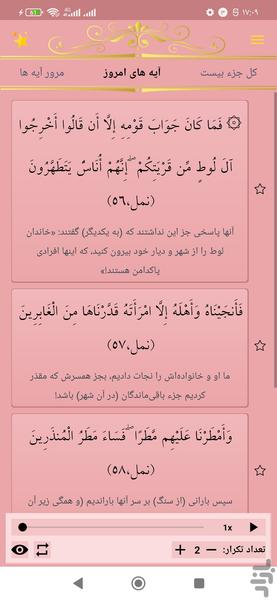 ۱۷:۰۹
کل جزء بیست
آیه های امروز
مرور آیه ها
۞ فَمَا كَانَ جَوَابَ قَوْمِهِ إِلَّا أَن قَالُوا أَخْرِجُوا
آلَ لُوطٍ مِّن قَرْيَتِكُمْ ۖ إِنَّهُمْ أُنَاسٌ يَتَطَهَّرُونَ
(نمل،۵۶)
آنها پاسخی جز این نداشتند که (به یکدیگر) گفتند: «خاندان
لوط را از شهر و دیار خود بیرون کنید، که اینها افرادی
پاکدامن هستند!»
فَأَنجَيْنَاهُ وَأَهْلَهُ إِلَّا امْرَأَتَهُ قَدَّرْنَاهَا مِنَ الْغَابِرِينَ
(نمل،۵۷)
ما او و خانواده‌اش را نجات دادیم، بجز همسرش که مقدر
کردیم جزء باقی‌ماندگان (در آن شهر) باشد!
وَأَمْطَرْنَا عَلَيْهِم مَّطَرًا ۖ فَسَاءَ مَطَرُ الْمُنذَرِينَ
(نمل،۵۸)
سپس بارانی (از سنگ) بر سر آنها باراندیم (و همگی زیر آن
1x
تعداد تکرار: — 2 +
بازار